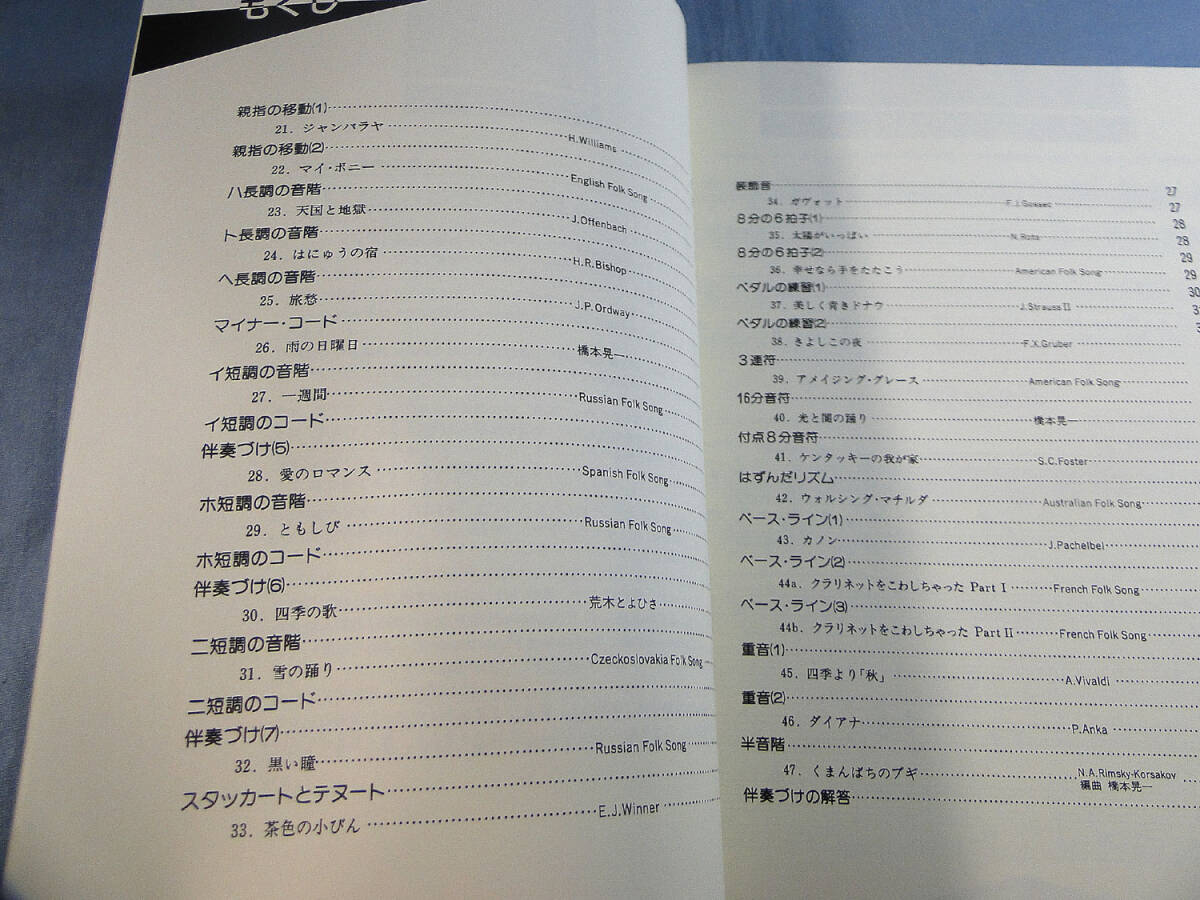 もくじ
親指の移動(1)
21. ジャンバラヤ H.Williams
親指の移動(2)
22. マイ・ボニー English Folk Song
ハ長調の音階
23. 天国と地獄 J.Offenbach
ト長調の音階
24. はにゅうの宿 H.R.Bishop
ヘ長調の音階
25. 旅愁 J.P.Ordway
マイナー・コード
26. 雨の日曜日 橋本晃一
イ短調の音階
27. 一週間 Russian Folk Song
イ短調のコード
伴奏づけ(5)
28. 愛のロマンス Spanish Folk Song
ホ短調の音階
29. ともしび Russian Folk Song
ホ短調のコード
伴奏づけ(6)
30. 四季の歌 荒木とよひさ
ニ短調の音階
31. 雪の踊り Czeckoslovakia Folk Song
ニ短調のコード
伴奏づけ(7)
32. 黒い瞳 Russian Folk Song
スタッカートとテヌート
33. 茶色の小びん E.J.Winner
装飾音 27
34. ガヴォット F.J.Gossec 27
8分の6拍子(1) 28
35. 太陽がいっぱい N.Rota 28
8分の6拍子(2) 29
36. 幸せなら手をたたこう American Folk Song 29
ペダルの練習(1) 30
37. 美しく青きドナウ J.Strauss II
ペダルの練習(2)
38. きよしこの夜 F.X.Gruber
3連符
39. アメイジング・グレース American Folk Song
16分音符
40. 光と闇の踊り 橋本晃一
付点8分音符
41. ケンタッキーの我が家 S.C.Foster
はずんだリズム
42. ウォルシング・マチルダ Australian Folk Song
ベース・ライン(1)
43. カノン J.Pachelbel
ベース・ライン(2)
44a. クラリネットをこわしちゃった Part I French Folk Song
ベース・ライン(3)
44b. クラリネットをこわしちゃった Part II French Folk Song
重音(1)
45. 四季より「秋」 A.Vivaldi
重音(2)
46. ダイアナ P.Anka
半音階
47. くまんばちのブギ N.A.Rimsky-Korsakov
編曲 橋本晃一
伴奏づけの解答